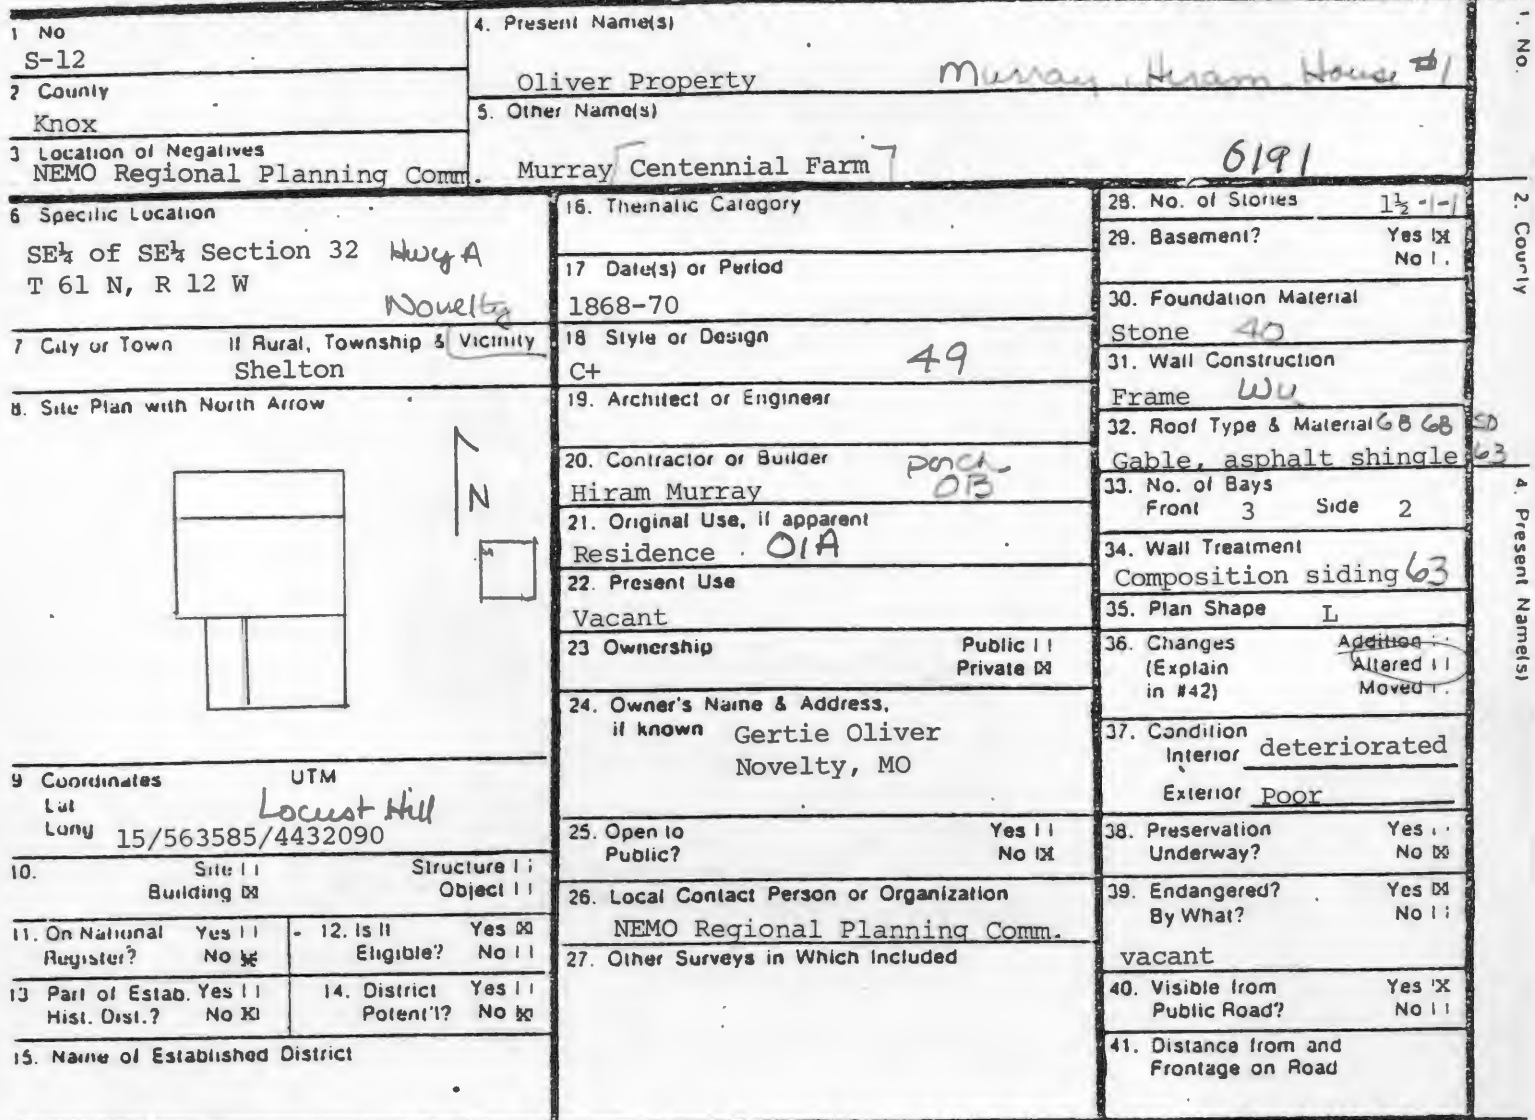 1 No
S-12
2 County
Knox
3 Location of Negatives
NEMO Regional Planning Comm.
4. Present Name(s)
Oliver Property Murray, Hiram House #1
5. Other Name(s)
Murray Centennial Farm 6191
6 Specific Location
SE¼ of SE¼ Section 32 Hwy A
T 61 N, R 12 W
Novelty
7 City or Town If Rural, Township & Vicinity
Shelton
8. Site Plan with North Arrow
N
9 Coordinates UTM
Lat
Locust Hill
Long 15/563585/4432090
10. Site Structure
Building X Object
11. On National Register? Yes No X
12. Is It Eligible? Yes X No
13 Part of Estab. Hist. Dist.? Yes No X
14. District Potent'l? Yes No X
15. Name of Established District
16. Thematic Category
17 Date(s) or Period
1868-70
18 Style or Design
C+ 49
19. Architect or Engineer
20. Contractor or Builder
Hiram Murray porch OB
21. Original Use, if apparent
Residence 01A
22. Present Use
Vacant
23 Ownership Public
Private X
24. Owner's Name & Address,
if known Gertie Oliver
Novelty, MO
25. Open to Yes
Public? No X
26. Local Contact Person or Organization
NEMO Regional Planning Comm.
27. Other Surveys in Which Included
28. No. of Stories 1½-1-1
29. Basement? Yes X
No
30. Foundation Material
Stone 40
31. Wall Construction
Frame WU
32. Roof Type & Material GB GB SD
Gable, asphalt shingle 63
33. No. of Bays
Front 3 Side 2
34. Wall Treatment
Composition siding 63
35. Plan Shape L
36. Changes Addition
(Explain Altered
in #42) Moved
37. Condition
Interior deteriorated
Exterior Poor
38. Preservation Yes
Underway? No X
39. Endangered? Yes X
By What? No
vacant
40. Visible from Yes X
Public Road? No
41. Distance from and
Frontage on Road
1. No.
2. County
4. Present Name(s)